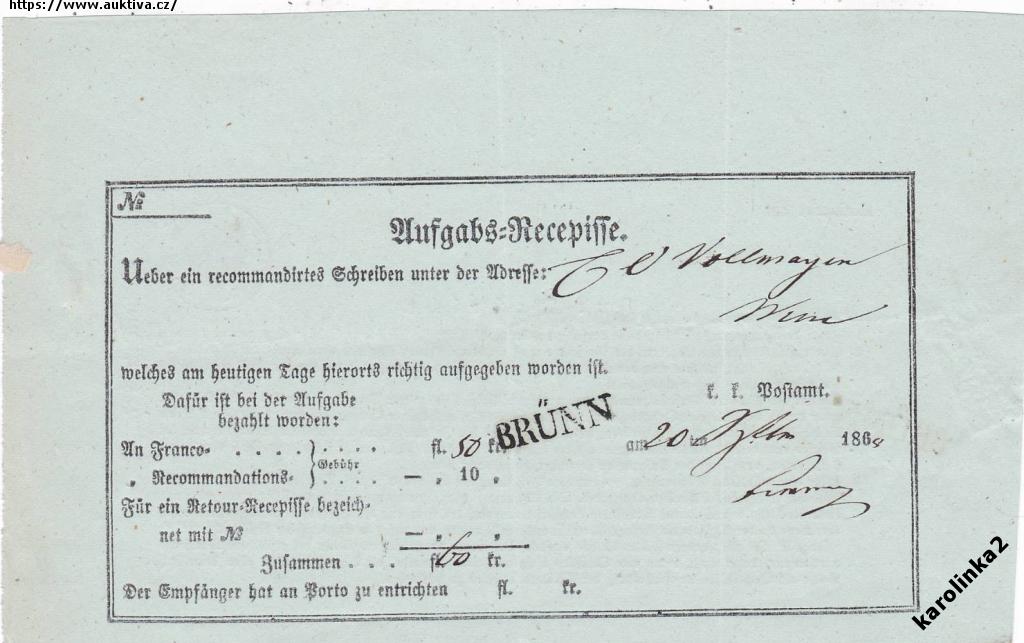 https://www.auktiva.cz/
№
Aufgabs-Recepisse.
Ueber ein recommandirtes Schreiben unter der Adresse: Vollmayer
Wien
welches am heutigen Tage hierorts richtig aufgegeben worden ist.
Dafür ist bei der Aufgabe k. k. Postamt.
bezahlt worden:
BRÜNN
An Franco- . . . . } . . . . fl. 50 kr. am 20 186
„ Recommandations- } Gebühr . . . . — „ 10 „
Für ein Retour-Recepisse bezeich-
net mit № — „ „
Zusammen . . . fl. 60 kr.
Der Empfänger hat an Porto zu entrichten fl. kr.
karolinka2